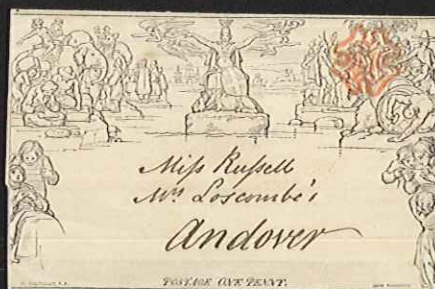 Miſs Ruſsell
Mrs Loscombe's
Andover
POSTAGE ONE PENNY.